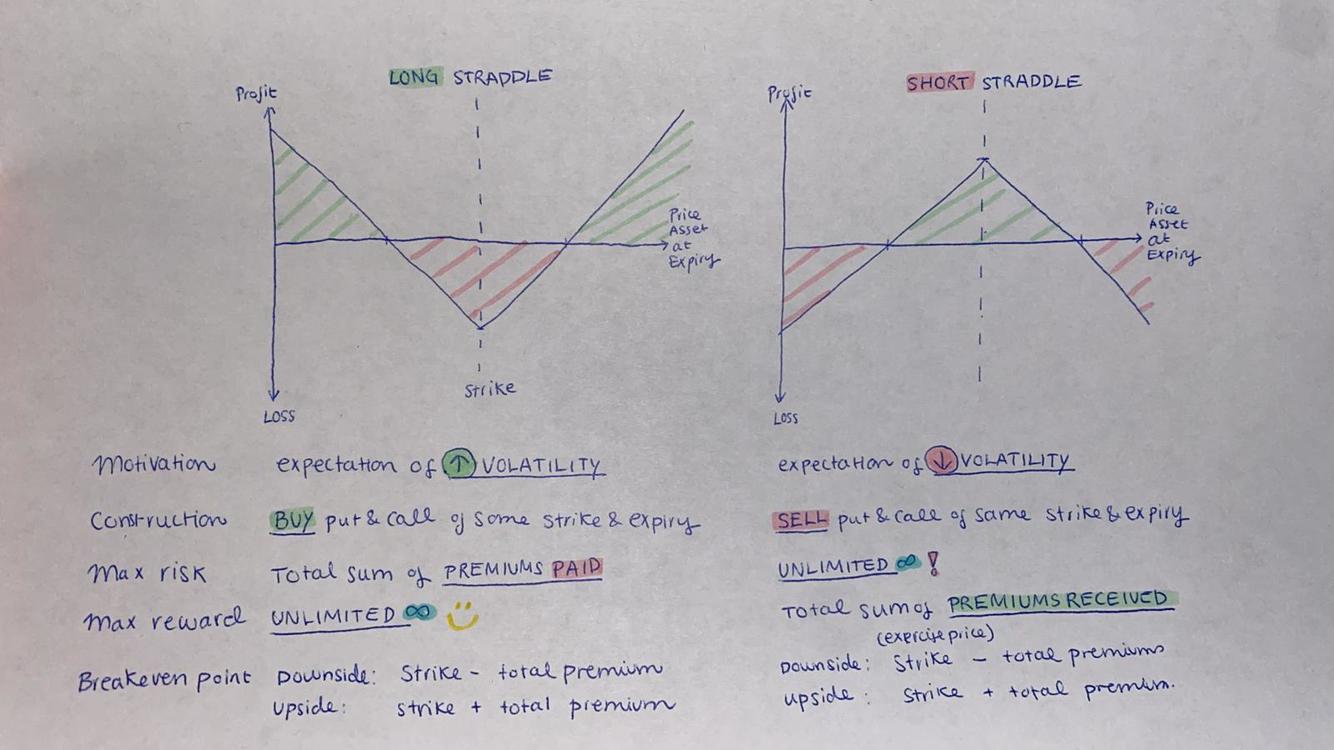 LONG STRADDLE
Profit
Price
Asset
at
Expiry
Strike
LOSS
SHORT STRADDLE
Profit
Price
Asset
at
Expiry
LOSS
Motivation expectation of ↑ VOLATILITY expectation of ↓ VOLATILITY
Construction BUY put & call of same strike & expiry SELL put & call of same strike & expiry
Max risk Total sum of PREMIUMS PAID UNLIMITED ∞ !
Max reward UNLIMITED ∞ Total sum of PREMIUMS RECEIVED
(exercise price)
Breakeven point Downside: Strike - total premium Downside: Strike - total premiums
Upside: strike + total premium Upside: strike + total premium.